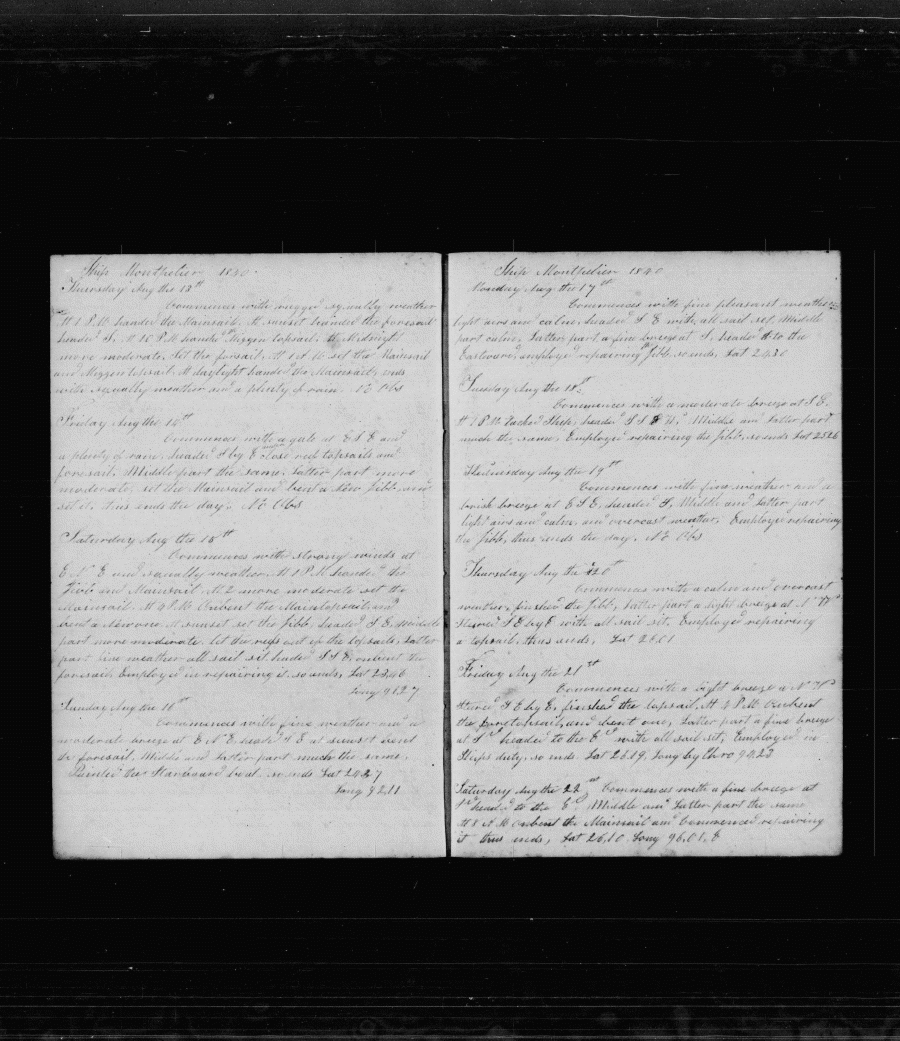 Ship Montpelier 1840
Thursday Aug the 13th
Commences with rugged squally weather
At 1 P.M. handed the Mainsail. At sunset handed the foresail
headed S. At 10 P.M. handed Mizzen topsail. At Midnight
more moderate. Set the foresail. At 1 A.M. set the Mainsail
and Mizzen topsail. At daylight handed the Mainsail, ends
with squally weather and a plenty of rain. No Obs
Friday Aug the 14th
Commences with a gale at E S E and
a plenty of rain, headed S by E close reef topsails and
foresail. Middle part the same. Latter part more
moderate, set the Mainsail and bent a New jibb and
set it. thus ends the day. No Obs
Saturday Aug the 15th
Commences with strong winds at
E N E and squally weather. At 1 P.M. handed the
jibb and Mainsail. At 2 more moderate set the
Mainsail. At 4 P.M. Unbent the Maintopsail and
bent a New one. At sunset set the jibb, headed S E. Middle
part more moderate. let the reefs out of the topsails, Latter
part fine weather all sail set headed S S E, unbent the
foresail. Employed in repairing it. so ends, Lat 23.46
Long 91.27
Sunday Aug the 16th
Commences with fine weather and a
moderate breeze at E N E, headed S E at sunset bent
the foresail. Middle and Latter part much the same.
Painted the Starboard boat. so ends Lat 24.27
Long 92.11
Ship Montpelier 1840
Monday Aug the 17th
Commences with fine pleasant weather
light airs and calm, headed S E with all sail set. Middle
part calm, Latter part a fine breeze at S. headed to the
Eastward, employed repairing jibb, so ends. Lat 24.30
Tuesday Aug the 18th
Commences with a moderate breeze at S E.
At 1 P.M. Tacked Ship, headed S S W. Middle and Latter part
much the same. Employed repairing the jibb, so ends Lat 25.26
Wednesday Aug the 19th
Commences with fine weather and a
brisk breeze at E S E, headed S. Middle and Latter part
light airs and calm, and overcast weather, Employed repairing
the jibb, thus ends the day. No Obs
Thursday Aug the 20th
Commences with a calm and overcast
weather, finished the jibb, Latter part a light breeze at N W
Steered S E by E with all sail set. Employed repairing
a topsail. thus ends, Lat 26.01
Friday Aug the 21st
Commences with a light breeze a N W
Steered S E by E, finished the topsail. At 4 P.M. Unbent
the foretopsail, and bent one, Latter part a fine breeze
at Nd headed to the Ed with all sail set, Employed in
Ships duty, so ends. Lat 25.19, Long by thro 94.23
Saturday Aug the 22nd Commences with a fine breeze at
Nd headed to the Ed, Middle and Latter part the same
At 8 A.M. Unbent the Mainsail and Commenced repairing
it thus ends, Lat 26.10. Long 96.01. E